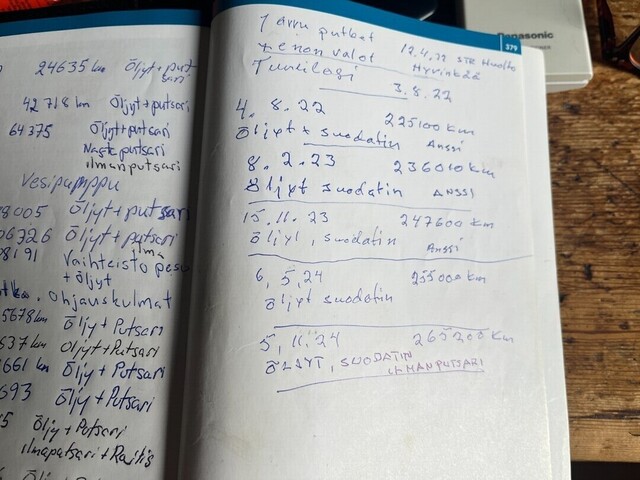 24635 km Öljyt + put
sari
42718 km Öljyt + putsari
64375 Öljyt + putsari
Nastaputsari
ilmanputsari
Vesipumppu
8005 Öljyt + putsari
06326 Öljyt + putsari
ilma
8191 Vaihteisto pesu
+ öljyt
Ohjauskulmat
5678 km Öljyt + Putsari
637 km Öljyt + Putsari
661 km Öljyt + Putsari
693 Öljyt + Putsari
5 Öljyt + Putsari
ilmaputsari + Raitis
Öljyt + Putsari
379
Jarru putket
xenon valot 12.4.22 STR Huolto
Hyvinkää
Tuulilasi 3.8.22
4. 8. 22 225100 km
Öljyt + suodatin Anssi
8. 2. 23 236010 km
Öljyt suodatin ANSSI
15. 11. 23 247600 km
Öljyt, suodatin Anssi
6, 5, 24 255000 km
Öljyt suodatin
5, 11, 24 265200 km
ÖLJYT, SUODATIN
ILMANPUTSARI
Panasonic